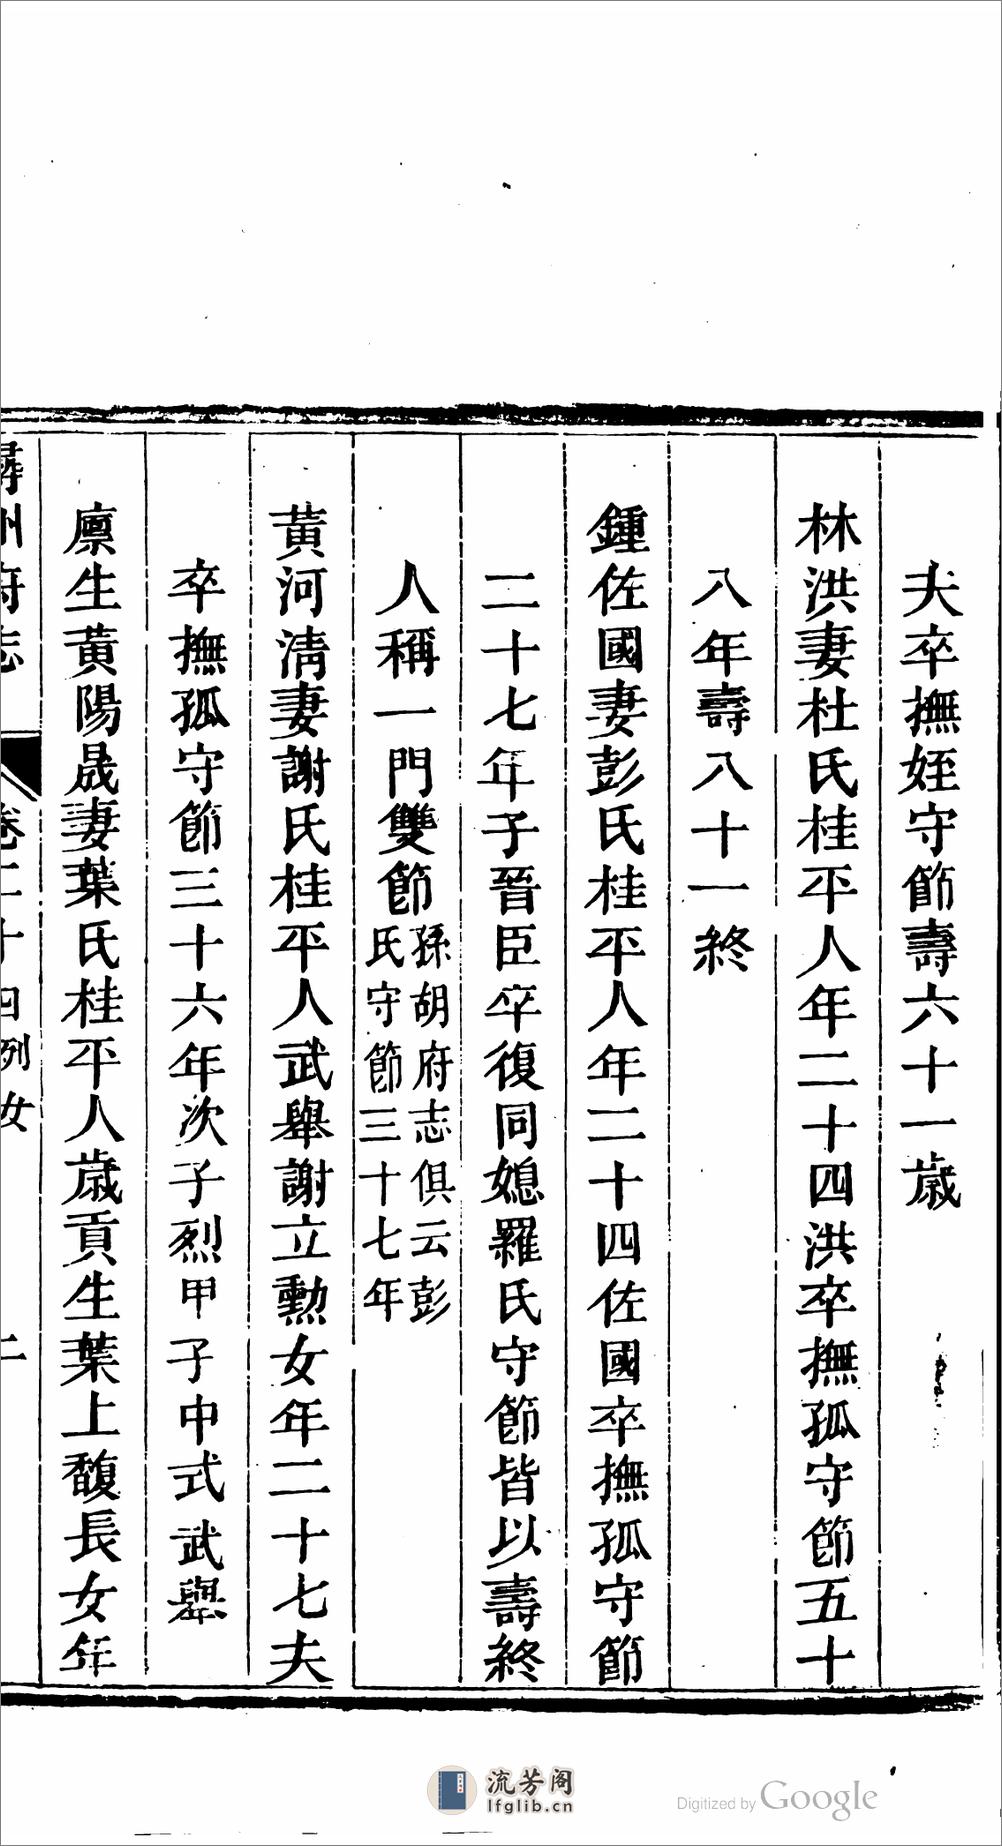 夫卒撫姪守節壽六十一歲
林洪妻杜氏桂平人年二十四洪卒撫孤守節五十
八年壽八十一終
鍾佐國妻彭氏桂平人年二十四佐國卒撫孤守節
二十七年子晉臣卒復同媳羅氏守節皆以壽終
人稱一門雙節
孫胡府志俱云彭
氏守節三十七年
黃河淸妻謝氏桂平人武舉謝立勲女年二十七夫
卒撫孤守節三十六年次子烈甲子中式武舉
廪生黃陽晟妻葉氏桂平人歲貢生葉上馥長女年
潯州府志
卷二十四列女
二
流芳阁
lfglib.cn
Digitized by Google